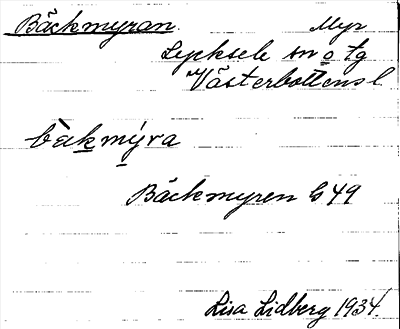 Bäckmyran. Myr
Lycksele sn o tg
Västerbottens l
bàkmýra
Bäckmyren G 49
Lisa Lidberg 1934